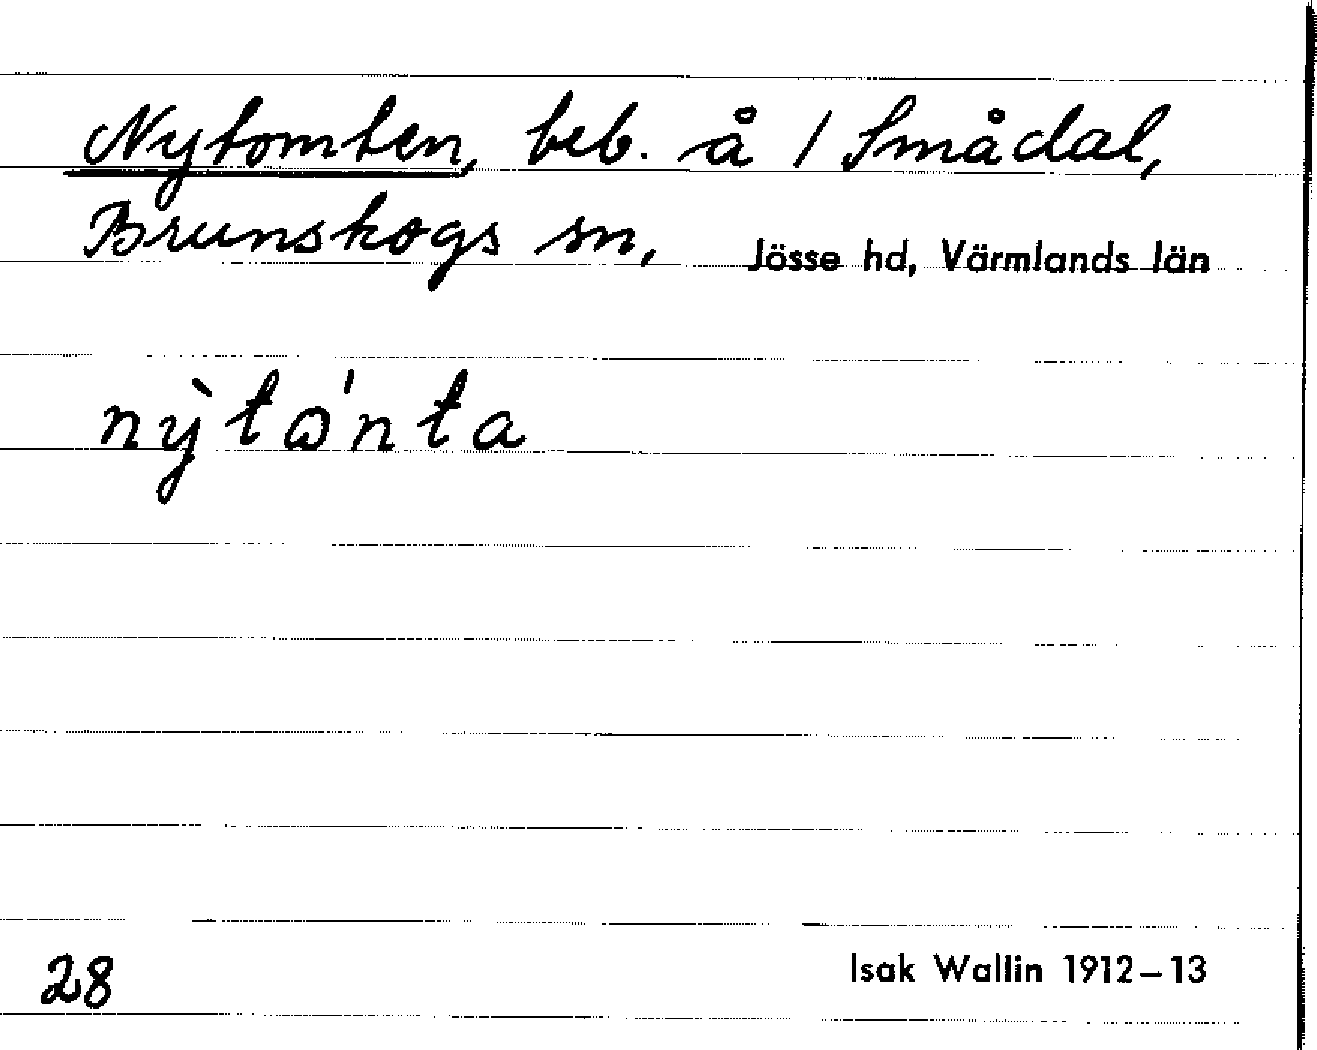 Nytomten, beb. å 1 Smådal,
Brunskogs sn, Jösse hd, Värmlands län
nỳtω'nta
28
Isak Wallin 1912–13